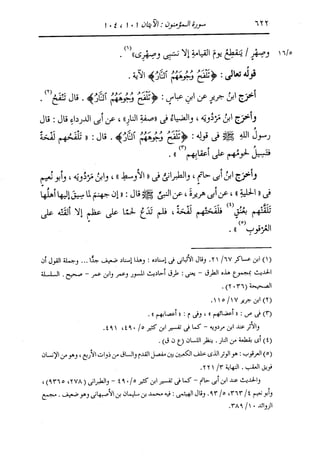 ٦٢٢
سورة المؤمنون : الآيتان ١٠١ ، ١٠٤
١٦/٥
وصهرٍ / ينقطعُ يومَ القيامةِ إلا نسبى وصهرى»(١).
قولُه تعالى : ﴿تَلْفَحُ وُجُوهَهُمُ النَّارُ﴾ الآية .
أخرَج ابنُ جريرٍ عن ابنِ عباسٍ : ﴿تَلْفَحُ وُجُوهَهُمُ النَّارُ﴾ . قال : تَنْفَحُ(٢) .
وأخرَج ابنُ مَرْدُويَه ، والضياءُ فى «صفةِ النارِ» ، عن أبى الدرداءِ قال : قال
رسولُ اللهِ ﷺ فى قولِه : ﴿تَلْفَحُ وُجُوهَهُمُ النَّارُ﴾ . قال : « تَلْفَحُهم لَفْحةً
فتَسِيلُ لحومُهم على أعقابِهم(٣)» .
وأخرَج ابنُ أبى حاتمٍ ، والطبرانىُّ فى « الأوسطِ » ، وابنُ مَرْدُويَه ، وأبو نُعيمٍ
فى « الحليةِ » ، عن أبى هريرةَ ، عن النبىِّ ﷺ قال : « إن جهنمَ لما سِيق إليها أهلُها
تَلَقَّتْهم بعُنُقٍ(٤) فلَفَحَتْهم لَفْحةً ، فلم تَدَعْ لحمًا على عظمٍ إلا ألقَتْه على
العُرْقوبِ(٥)» .
(١) ابن عساكر ٢١/٦٧. وقال الألبانى فى إسناده : وهذا إسناد ضعيف جدًّا ... وجملة القول أن
الحديث بمجموع هذه الطرق - يعنى : طرق أحاديث المسور وعمر وابن عمر - صحيح . السلسلة
الصحيحة (٢٠٣٦) .
(٢) ابن جرير ١١٥/١٧.
(٣) فى ص : « أعضائهم » ، وفى م : « أعصابهم » .
والأثر عند ابن مردويه - كما فى تفسير ابن كثير ٥/ ٤٩٠، ٤٩١.
(٤) أى بقطعة من النار . ينظر اللسان (ع ن ق) .
(٥) العرقوب : هو الوتر الذى خلف الكعبين بين مفصل القدم والساق من ذوات الأربع ، وهو من الإنسان
فويق العقب . النهاية ٢٢١/٣.
والحديث عند ابن أبى حاتم - كما فى تفسير ابن كثير ٤٩٠/٥ - والطبرانى (٢٧٨، ٩٣٦٥) ،
وأبو نعيم ٣٦٣/٤، ٩٣/٥. وقال الهيثمى : فيه محمد بن سليمان بن الأصبهانى وهو ضعيف . مجمع
الزوائد ٣٨٩/١٠.